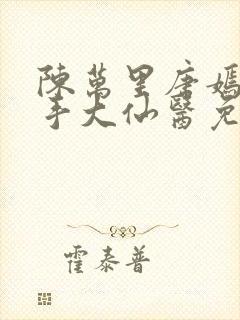 陳萬里唐嫣
手大仙醫免
霍泰普